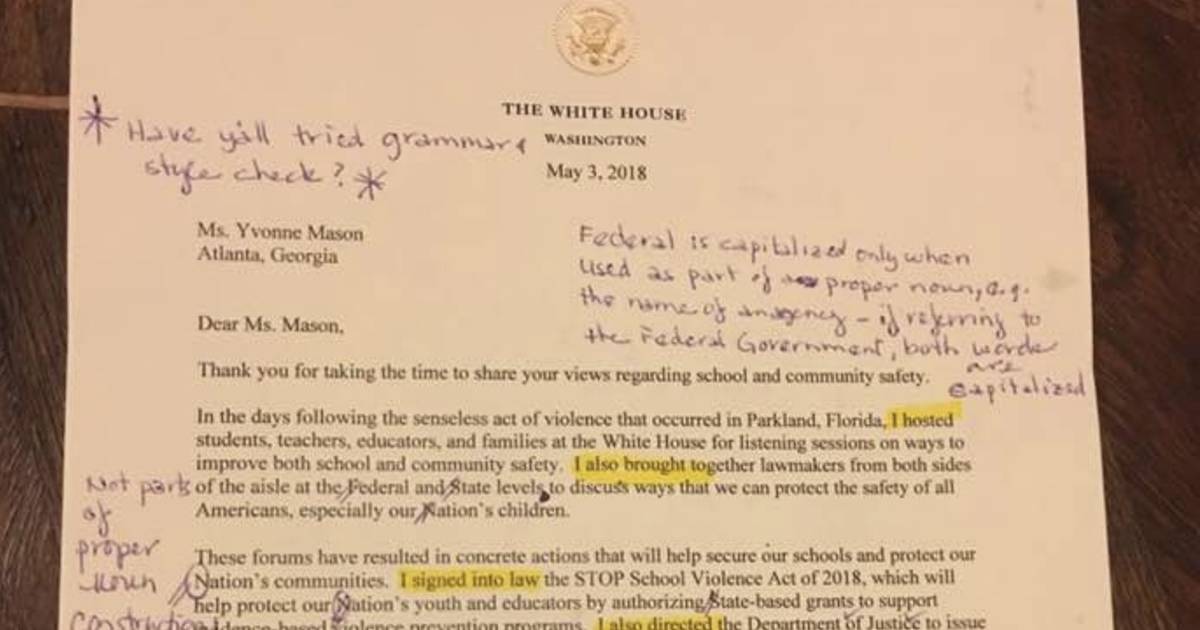 THE WHITE HOUSE
* Have y'all tried grammar & WASHINGTON
style check? *
May 3, 2018
Ms. Yvonne Mason
Atlanta, Georgia
Federal is capitalized only when
used as part of proper noun, e.g.
the name of an agency – if referring to
the Federal Government, both words
are
capitalized
Dear Ms. Mason,
Thank you for taking the time to share your views regarding school and community safety.
In the days following the senseless act of violence that occurred in Parkland, Florida, I hosted
students, teachers, educators, and families at the White House for listening sessions on ways to
improve both school and community safety. I also brought together lawmakers from both sides
of the aisle at the Federal and State levels to discuss ways that we can protect the safety of all
Americans, especially our Nation's children.
Not parts
of
proper
noun
These forums have resulted in concrete actions that will help secure our schools and protect our
Nation's communities. I signed into law the STOP School Violence Act of 2018, which will
help protect our Nation's youth and educators by authorizing State-based grants to support
violence prevention programs. I also directed the Department of Justice to issue